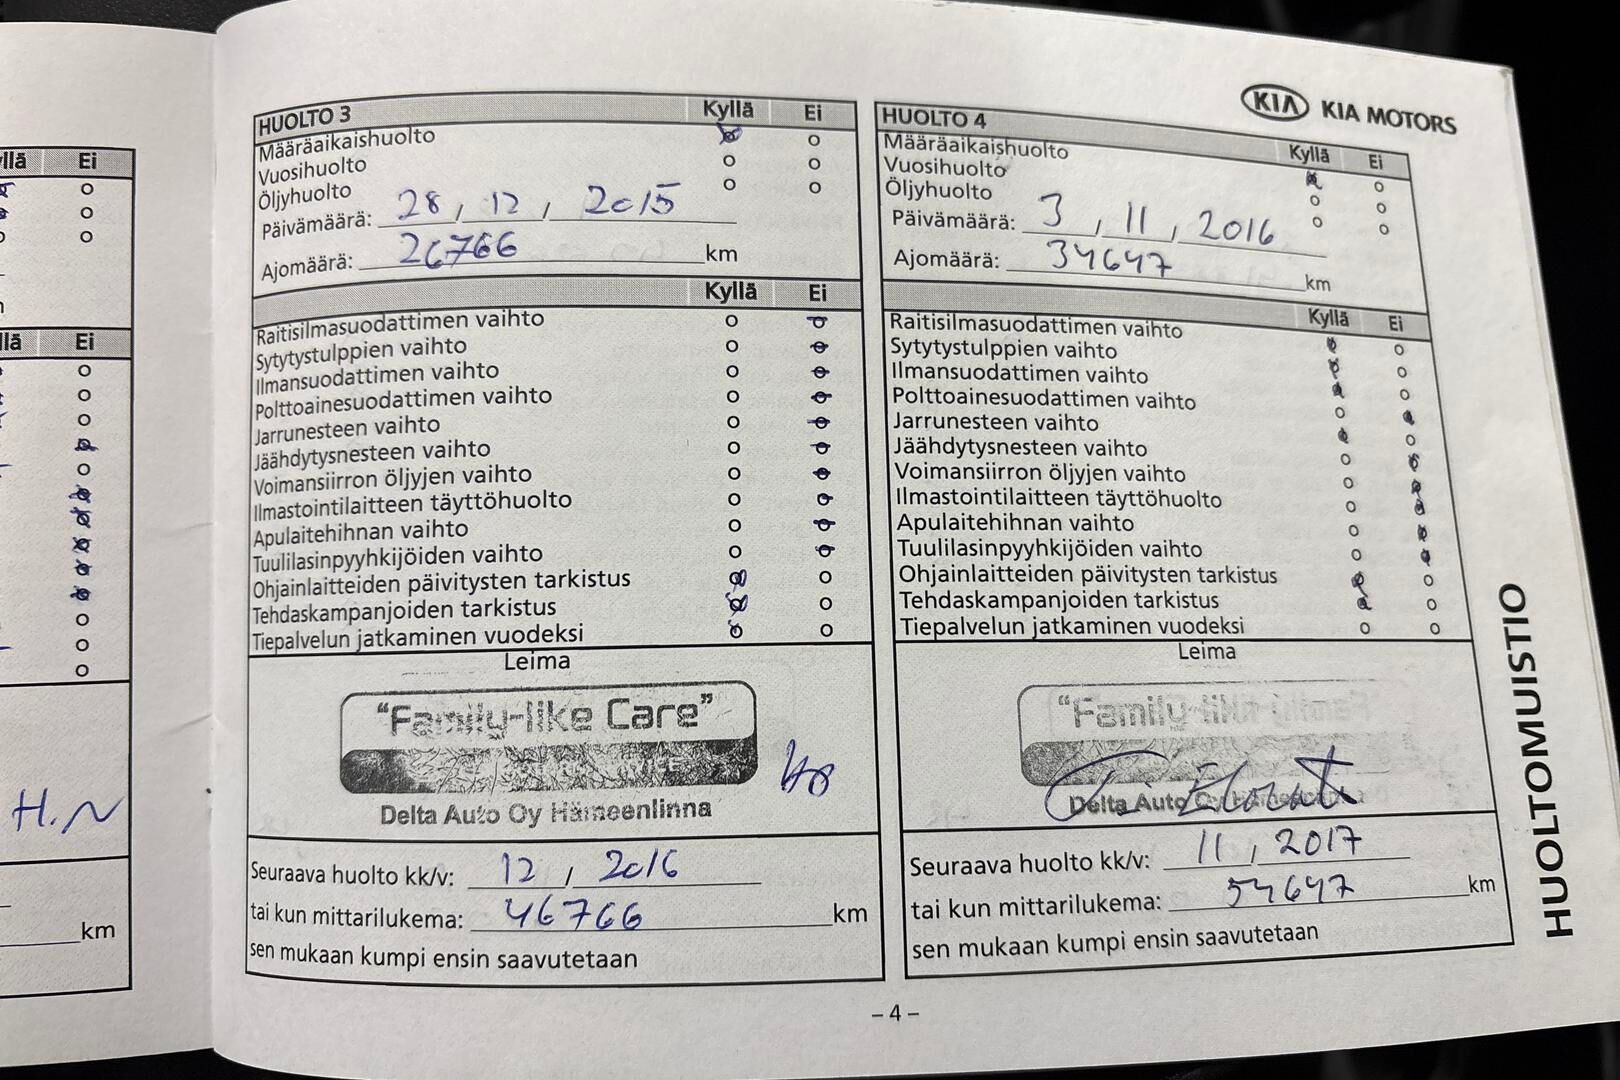 llä Ei
llä Ei
H.N
km
HUOLTO 3 Kyllä Ei
Määräaikaishuolto
Vuosihuolto
Öljyhuolto
Päivämäärä: 28, 12, 2015
Ajomäärä: 26766 km
Kyllä Ei
Raitisilmasuodattimen vaihto
Sytytystulppien vaihto
Ilmansuodattimen vaihto
Polttoainesuodattimen vaihto
Jarrunesteen vaihto
Jäähdytysnesteen vaihto
Voimansiirron öljyjen vaihto
Ilmastointilaitteen täyttöhuolto
Apulaitehihnan vaihto
Tuulilasinpyyhkijöiden vaihto
Ohjainlaitteiden päivitysten tarkistus
Tehdaskampanjoiden tarkistus
Tiepalvelun jatkaminen vuodeksi
Leima
"Family-like Care"
Delta Auto Oy Hämeenlinna
Seuraava huolto kk/v: 12, 2016
tai kun mittarilukema: 46766 km
sen mukaan kumpi ensin saavutetaan
KIA KIA MOTORS
HUOLTO 4
Kyllä Ei
Määräaikaishuolto
Vuosihuolto
Öljyhuolto
Päivämäärä: 3, 11, 2016
Ajomäärä: 34647 km
Kyllä Ei
Raitisilmasuodattimen vaihto
Sytytystulppien vaihto
Ilmansuodattimen vaihto
Polttoainesuodattimen vaihto
Jarrunesteen vaihto
Jäähdytysnesteen vaihto
Voimansiirron öljyjen vaihto
Ilmastointilaitteen täyttöhuolto
Apulaitehihnan vaihto
Tuulilasinpyyhkijöiden vaihto
Ohjainlaitteiden päivitysten tarkistus
Tehdaskampanjoiden tarkistus
Tiepalvelun jatkaminen vuodeksi
Leima
"Family-like
Delta Auto Oy
Seuraava huolto kk/v: 11, 2017
tai kun mittarilukema: 54647 km
sen mukaan kumpi ensin saavutetaan
HUOLTOMUISTIO
– 4 –